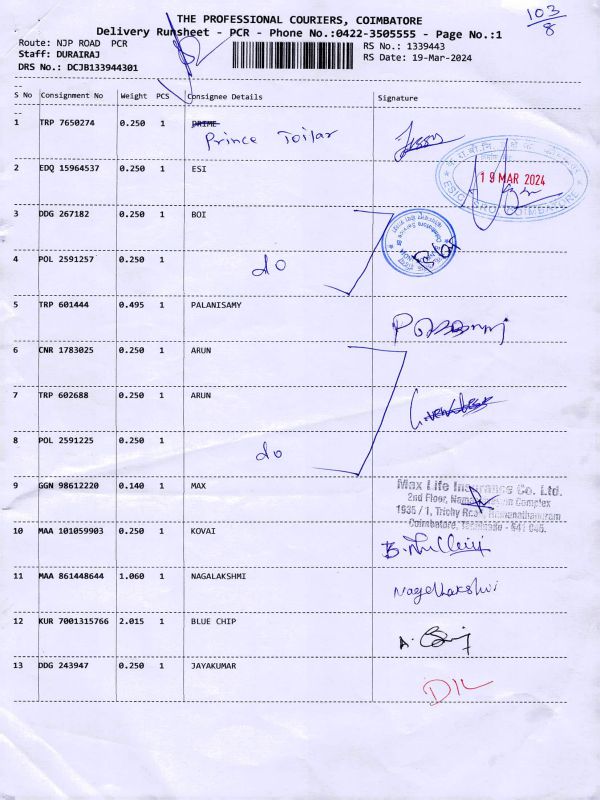 103
8
THE PROFESSIONAL COURIERS, COIMBATORE
Delivery Runsheet - PCR - Phone No.:0422-3505555 - Page No.:1
Route: NJP ROAD PCR
RS No.: 1339443
Staff: DURAIRAJ
RS Date: 19-Mar-2024
DRS No.: DCJB133944301
S No Consignment No Weight PCS Consignee Details Signature
1 TRP 7650274 0.250 1 PRIME
Prince Toilar
2 EDQ 15964537 0.250 1 ESI
19 MAR 2024
3 DDG 267182 0.250 1 BOI
4 POL 2591257 0.250 1 do
5 TRP 601444 0.495 1 PALANISAMY
6 CNR 1783025 0.250 1 ARUN
7 TRP 602688 0.250 1 ARUN
8 POL 2591225 0.250 1 do
9 GGN 98612220 0.140 1 MAX
Max Life Insurance Co. Ltd.
2nd Floor, Complex
1935 / 1, Trichy Road, Ramanathapuram
Coimbatore, - 641 045.
10 MAA 101059903 0.250 1 KOVAI
11 MAA 861448644 1.060 1 NAGALAKSHMI
Nagellakshmi
12 KUR 7001315766 2.015 1 BLUE CHIP
13 DDG 243947 0.250 1 JAYAKUMAR
D/L